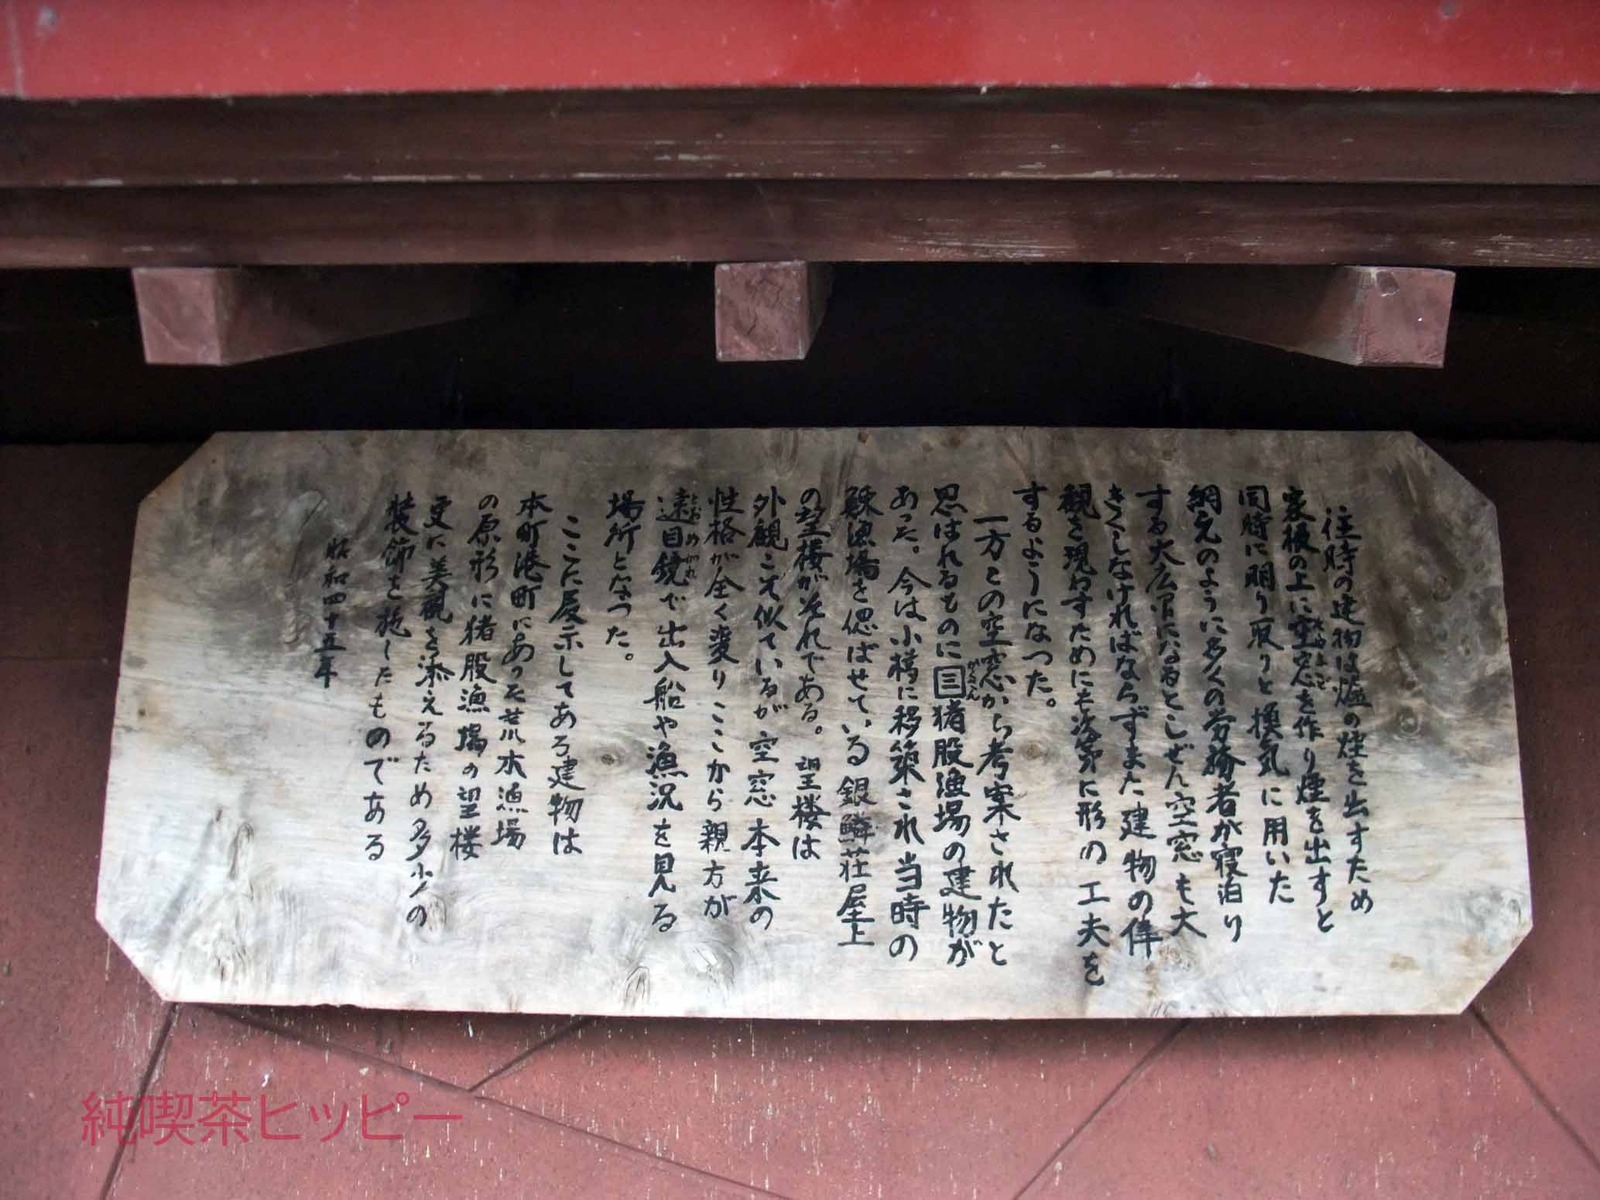 往時の建物は爐の煙を出すため
家棟の上に空窓を作り煙を出すと
同時に明り取りと換気に用いた
網元のように多くの労務者が寝泊り
する大広間になるとしぜん空窓も大
きくしなければならずまた建物の偉
観を現わすためにも次第に形の工夫を
するようになつた。
一方この空窓から考案されたと
思はれるものに三猪股漁場の建物が
あつた。今は小樽に移築され当時の
鰊漁場を偲ばせている銀鱗荘屋上
の望楼がそれである。望楼は
外観こそ似ているが空窓本来の
性格が全く変りここから親方が
遠目鏡で出入船や漁況を見る
場所となつた。
ここに展示してある建物は
本町港町にあつた茨木漁場
の原形に猪股漁場の望楼
更に美観を添えるため多少の
装飾を施したものである
昭和四十五年
純喫茶ヒッピー